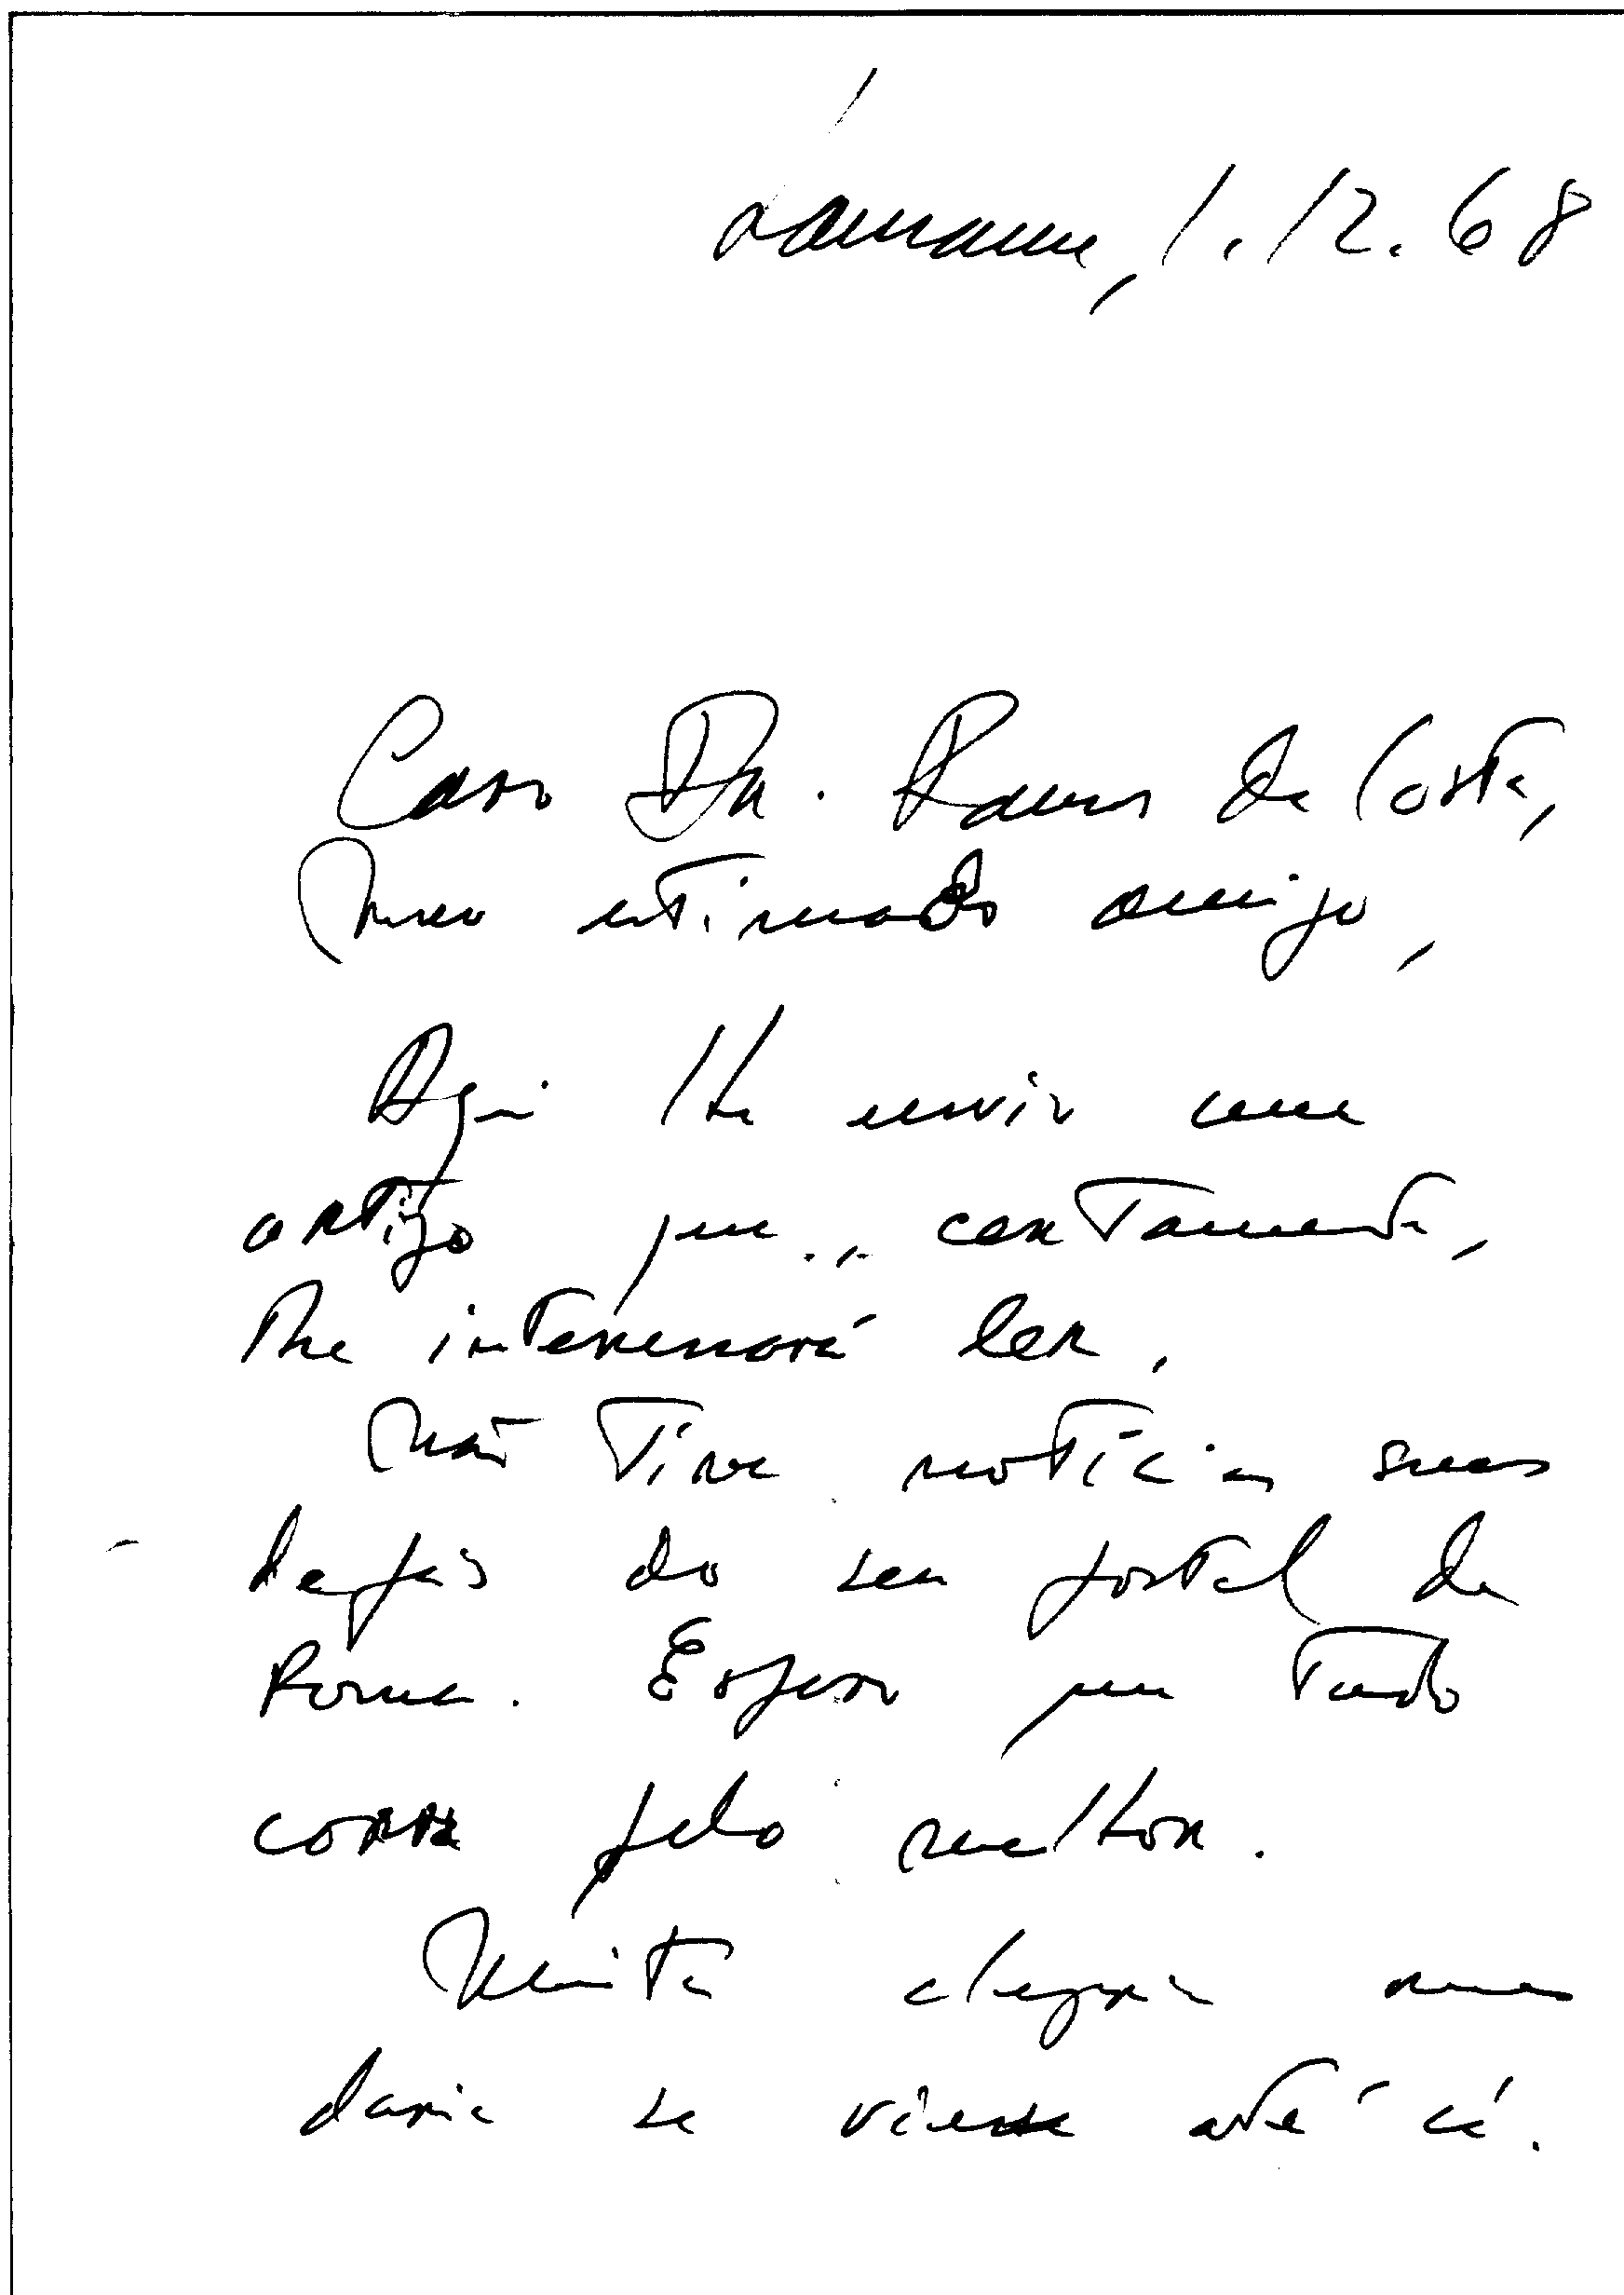 Lausanne, 1.12.68
Caro Dr. Ramos da Costa,
Meu estimado amigo,
Aqui lhe envio um
artigo que, certamente,
lhe interessará ler.
Não tive notícias suas
depois do seu postal de
Roma. Espero que tudo
corra pelo melhor.
Muita alegria nos
daria se viesse até cá.